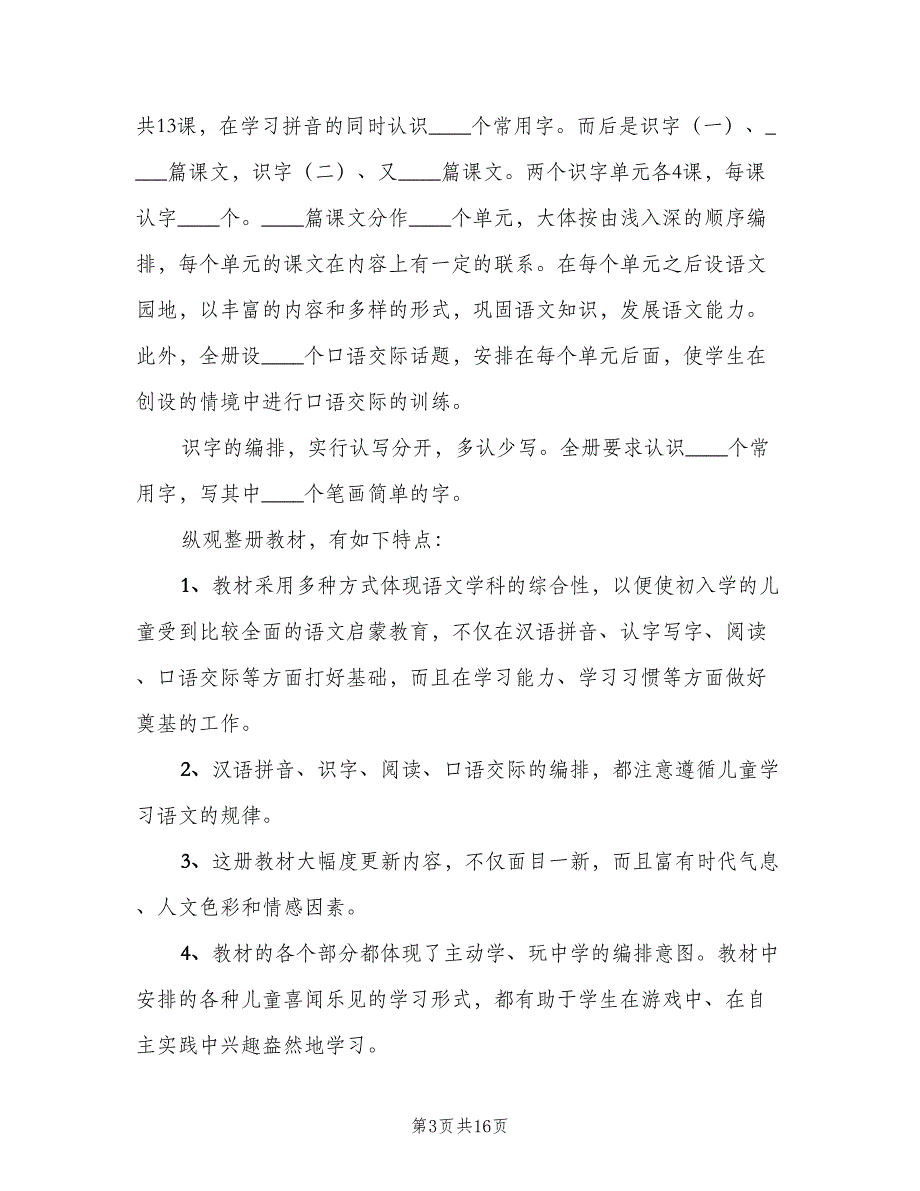 共13课，在学习拼音的同时认识____个常用字。而后是识字（一）、_
___篇课文，识字（二）、又____篇课文。两个识字单元各4课，每课
认字____个。____篇课文分作____个单元，大体按由浅入深的顺序编
排，每个单元的课文在内容上有一定的联系。在每个单元之后设语文
园地，以丰富的内容和多样的形式，巩固语文知识，发展语文能力。
此外，全册设____个口语交际话题，安排在每个单元后面，使学生在
创设的情境中进行口语交际的训练。
识字的编排，实行认写分开，多认少写。全册要求认识____个常
用字，写其中____个笔画简单的字。
纵观整册教材，有如下特点：
1、教材采用多种方式体现语文学科的综合性，以便使初入学的儿
童受到比较全面的语文启蒙教育，不仅在汉语拼音、认字写字、阅读
、口语交际等方面打好基础，而且在学习能力、学习习惯等方面做好
奠基的工作。
2、汉语拼音、识字、阅读、口语交际的编排，都注意遵循儿童学
习语文的规律。
3、这册教材大幅度更新内容，不仅面目一新，而且富有时代气息
、人文色彩和情感因素。
4、教材的各个部分都体现了主动学、玩中学的编排意图。教材中
安排的各种儿童喜闻乐见的学习形式，都有助于学生在游戏中、在自
主实践中兴趣盎然地学习。
第3页共16页